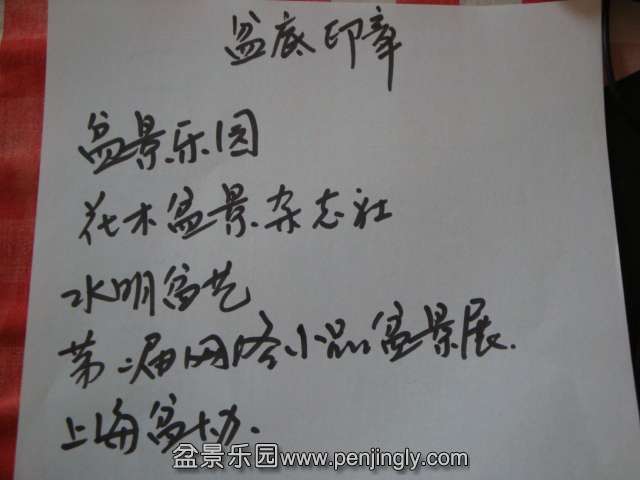 盆底印章
盆景乐园
花木盆景杂志社
水明盆艺
第二届网络小品盆景展.
上海盆协.
盆景乐园www.penjingly.com